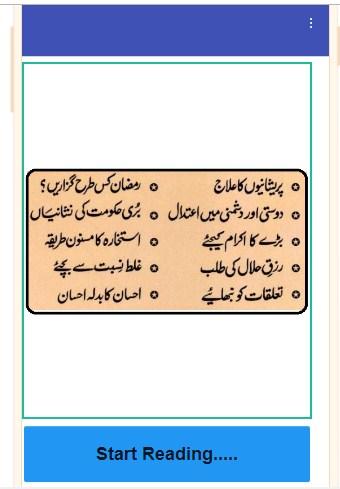 پریشانیوں کا علاج
دوستی اور دشمنی میں اعتدال
بڑے کا اکرام کیجئے
رزقِ حلال کی طلب
تعلقات کو نبھائیے
رمضان کس طرح گزاریں؟
بُری حکومت کی نشانیاں
استخارہ کا مسنون طریقہ
غلط نِسبت سے بچئے
احسان کا بدلہ احسان
Start Reading.....